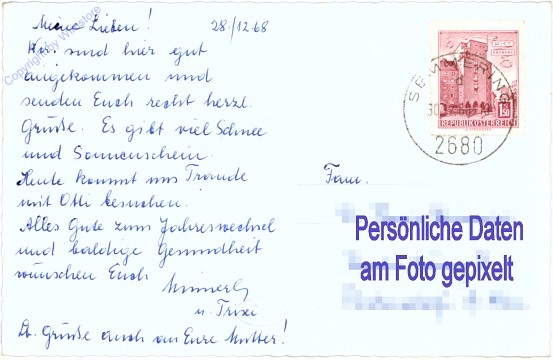 Meine Lieben! 28./12.68
Wir sind hier gut
angekommen und
senden Euch recht herzl.
Grüße. Es gibt viel Schnee
und Sonnenschein.
Heute kommt uns Traude
mit Otti besuchen.
Alles Gute zum Jahreswechsel
und baldige Gesundheit
wünschen Euch
u. Trixi
Lb. Grüße auch an Eure Mutter!
Fam.
Persönliche Daten
am Foto gepixelt
SEMMERING
2680
REPUBLIK ÖSTERREICH
1.50
Copyright by